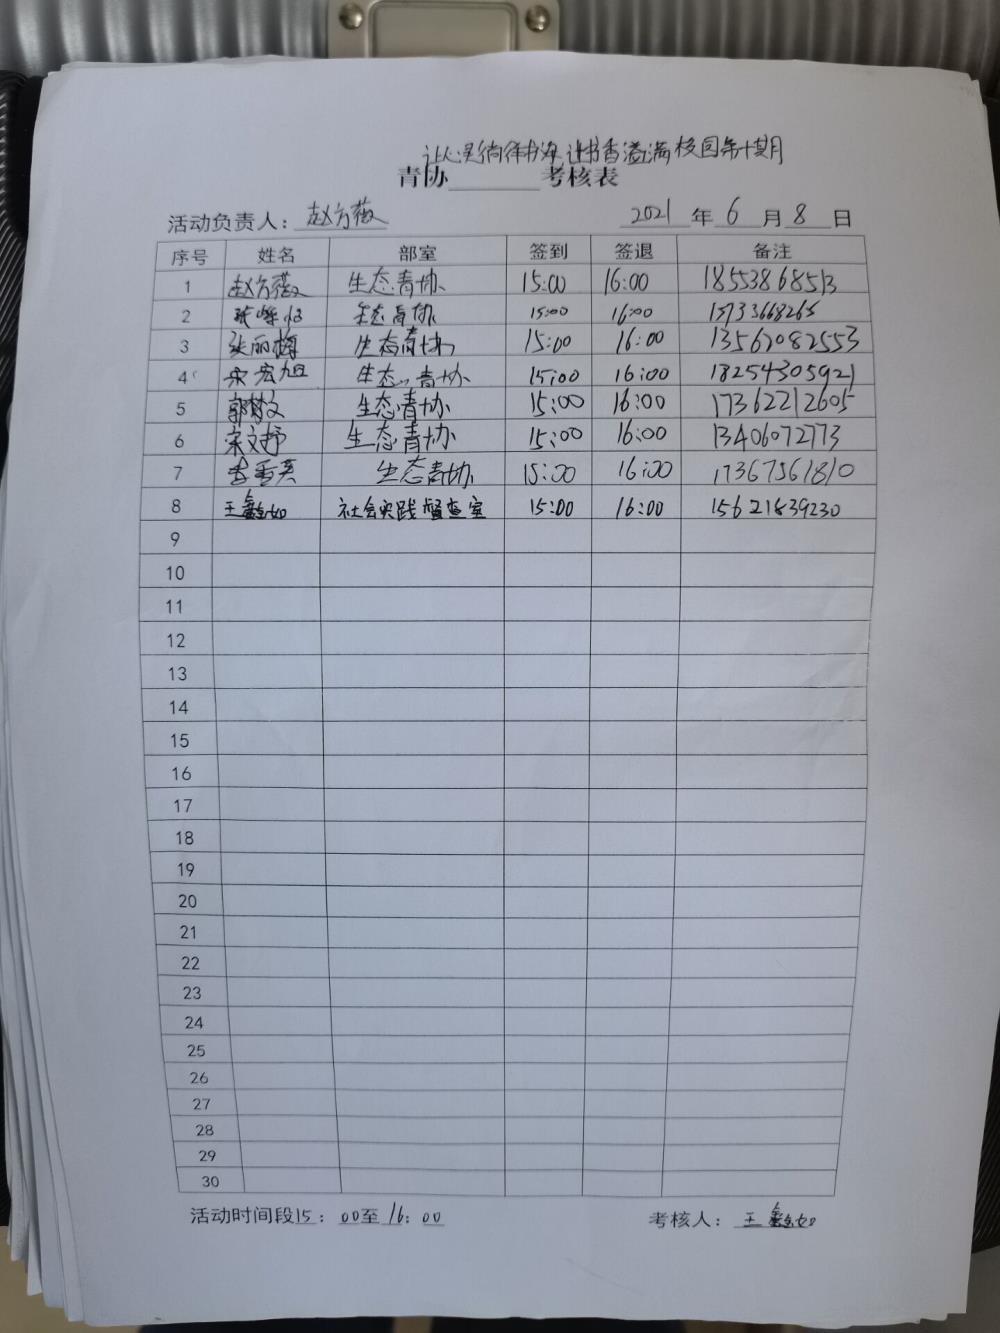 让心灵徜徉书海 让书香溢满校园第十期
青协______考核表
活动负责人：赵方薇 2021 年 6 月 8 日
序号 姓名 部室 签到 签退 备注
1 赵方薇 生态青协 15:00 16:00 18553868513
2 生态青协 15:00 16:00 15733668265
3 张丽梅 生态青协 15:00 16:00 13562082553
4 宋宏旭 生态青协 15:00 16:00 18254305921
5 郭敏 生态青协 15:00 16:00 17362212605
6 宋文静 生态青协 15:00 16:00 13406072773
7 生态青协 15:00 16:00 17367561810
8 王鑫如 社会实践督查室 15:00 16:00 15621839230
9
10
11
12
13
14
15
16
17
18
19
20
21
22
23
24
25
26
27
28
29
30
活动时间段15：00至16：00 考核人：王鑫如